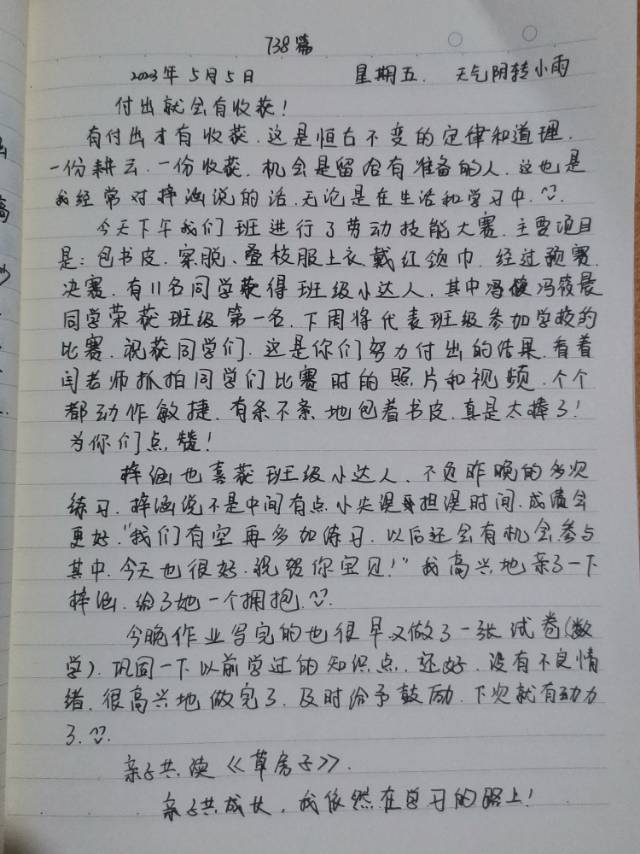 738篇
2023年5月5日 星期五. 天气阴转小雨
付出就会有收获!
有付出才有收获.这是恒古不变的定律和道理.
一份耕云.一份收获.机会是留给有准备的人.这也是
我经常对梓涵说的话.无论是在生活和学习中.
今天下午我们班进行了劳动技能大赛.主要项目
是:包书皮.穿脱、叠校服上衣戴红领巾.经过预赛.
决赛.有11名同学获得班级小达人.其中冯筱晨
同学荣获班级第一名.下周将代表班级参加学校的
比赛.祝获同学们.这是你们努力付出的结果.看着
闫老师抓拍同学们比赛时的照片和视频.个个
都动作敏捷.有条不紊地包着书皮.真是太棒了!
为你们点赞!
梓涵也喜获班级小达人.不负昨晚的多次
练习.梓涵说不是中间有点小失误担误时间.成绩会
更好."我们有空再多加练习.以后还会有机会参与
其中.今天也很好.祝贺你宝贝!"我高兴地亲了一下
梓涵.给了她一个拥抱.
今晚作业写完的也很早又做了一张试卷(数
学).巩固一下以前学过的知识点.还好.没有不良情
绪.很高兴地做完了.及时给予鼓励.下次就有动力
了.
亲子共读《草房子》.
亲子共成长.我依然在学习的路上!